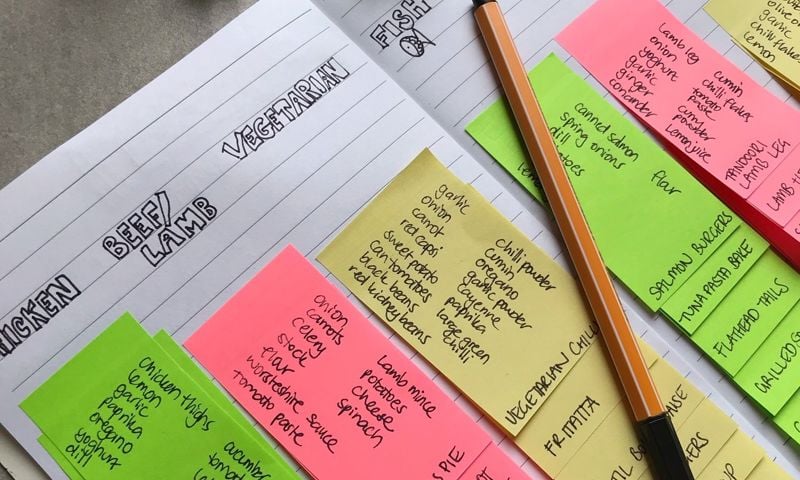 FISH
VEGETARIAN
BEEF/
LAMB
chicken thighs
lemon
garlic
paprika
oregano
yoghurt
dill
cucumber
onion
carrots
celery
stock
flar
worsteshire sauce
tomato paste
lamb mince
potatoes
cheese
spinach
PIE
garlic
onion
carrot
red caps
sweet potato
can tomatoes
black beans
red kidney beans
chilli powder
cumin
oregano
garlic powder
cayenne
paprika
large green
chilli
VEGETARIAN
FRITATTA
canned salmon
spring onions
dill
flar
SALMON BURGERS
TUNA PASTA BAKE
FLATHEAD TAILS
GRILLED
lamb leg
onion
yoghurt
garlic
ginger
coriander
cumin
chilli flakes
tomato
paste
powder
lemon juice
TANDOORI
LAMB LEG
LAMB
garlic
lemon